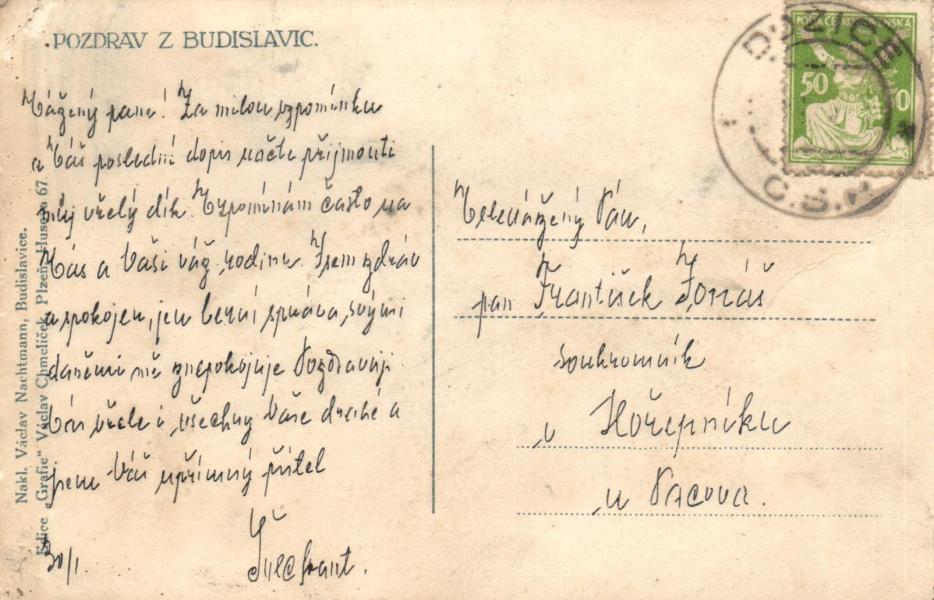 POZDRAV Z BUDISLAVIC.
Vážený pane! Za milou vzpomínku
a Váš poslední dopis račte přijmouti
můj vřelý dík. Vzpomínám často na
Vás a Vaši váž. rodinu. Jsem zdráv
a spokojen, jen berní správa svými
daněmi mě znepokojuje Pozdravuji
Vás vřele i všechny Vaše drahé a
jsem Váš upřímný přítel
30/1
Nakl. Václav Nachtmann, Budislavice.
Edice „Grafie“ Václav Chmelíček Plzeň, Husova 67
POŠTA ČESKOSLOVENSKÁ
50
Č.S.
Velevážený Pan,
pan František Jonáš
soukromník
v Hořepníku
u Pacova.